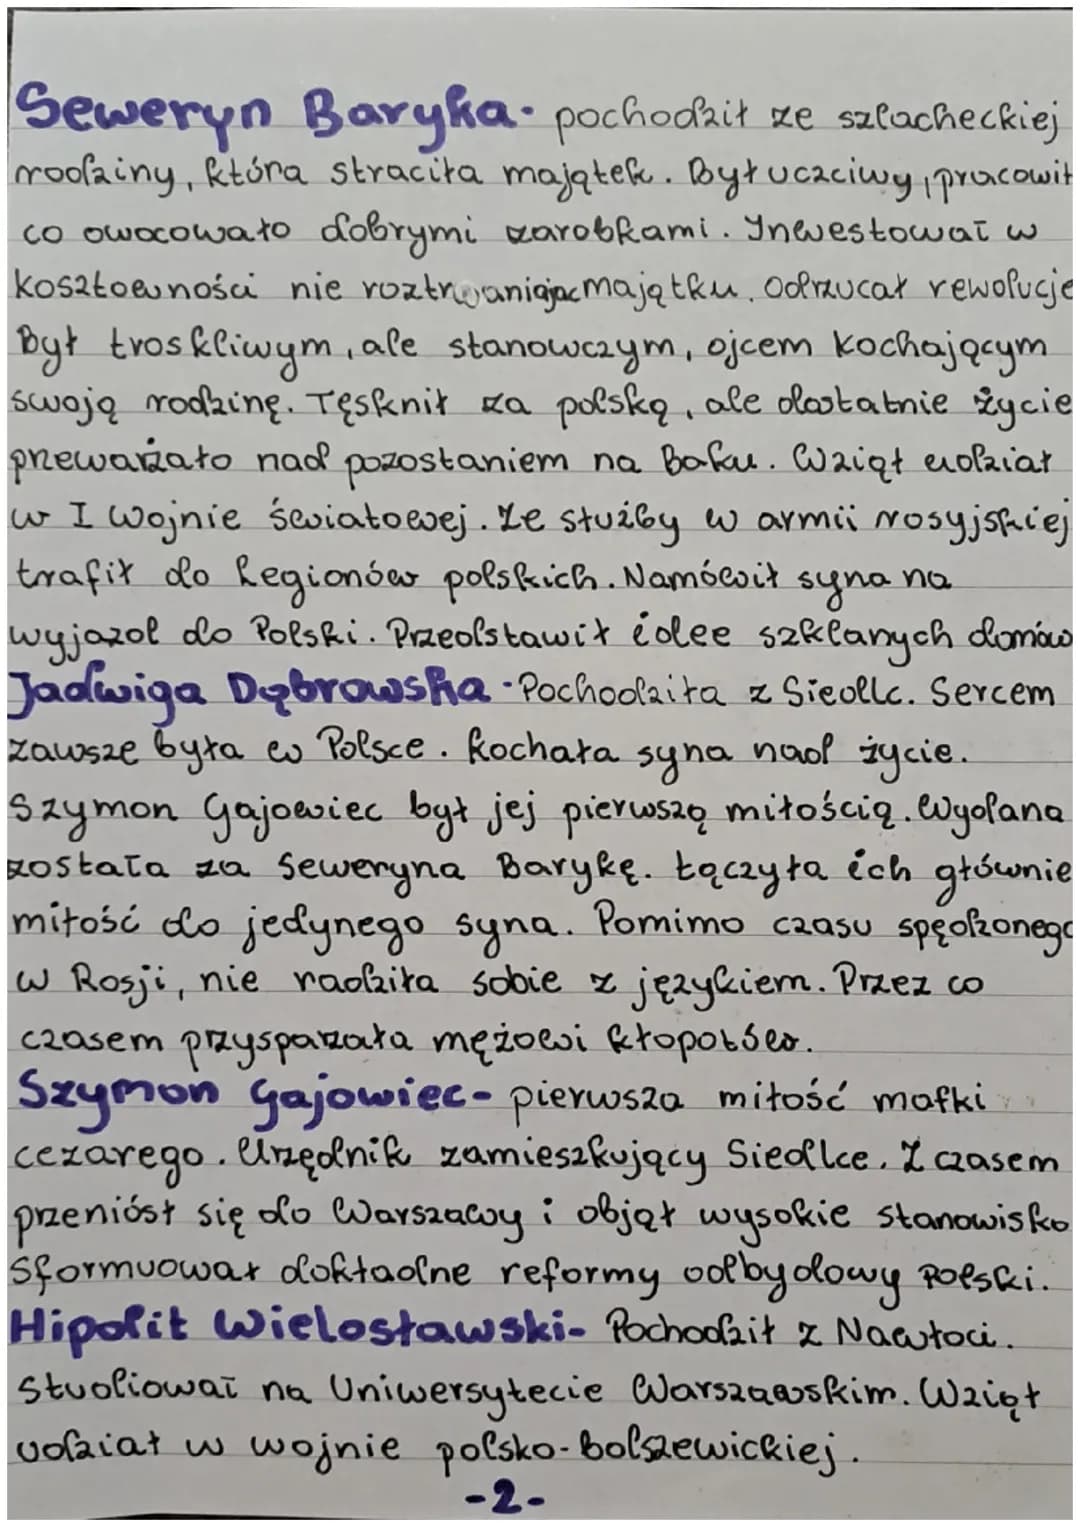 Seweryn Baryka- pochodził ze szlacheckiej
rodziny, która straciła majątek. Był uczciwy, pracowit
co owocowało dobrymi zarobkami. Inwestował w
kosztowności nie roztrwaniając majątku. Odrzucał rewolucje
Był troskliwym, ale stanowczym, ojcem kochającym
swoją rodzinę. Tęsknił za polską, ale dostatnie życie
przeważało nad pozostaniem na Baku. Wziął udział
w I Wojnie światowej. Ze służby w armii rosyjskiej
trafił do Legionów polskich. Namówił syna na
wyjazd do Polski. Przedstawił idee szklanych domów
Jadwiga Dąbrowska - Pochodziła z Siedlc. Sercem
zawsze była w Polsce. Kochała syna nad życie.
Szymon Gajowiec był jej pierwszą miłością. Wydana
została za Seweryna Barykę. Łączyła ich głównie
miłość do jedynego syna. Pomimo czasu spędzonego
w Rosji, nie radziła sobie z językiem. Przez co
czasem przysparzała mężowi kłopotów.
Szymon Gajowiec- pierwsza miłość matki
cezarego. Urzędnik zamieszkujący Siedlce. Z czasem
przeniósł się do Warszawy i objął wysokie stanowisko
Sformuował dokładne reformy odbydowy Polski.
Hipolit Wielosławski- Pochodził z Nawłoci.
Studiował na Uniwersytecie Warszawskim. Wziął
udział w wojnie polsko-bolszewickiej.
-2-